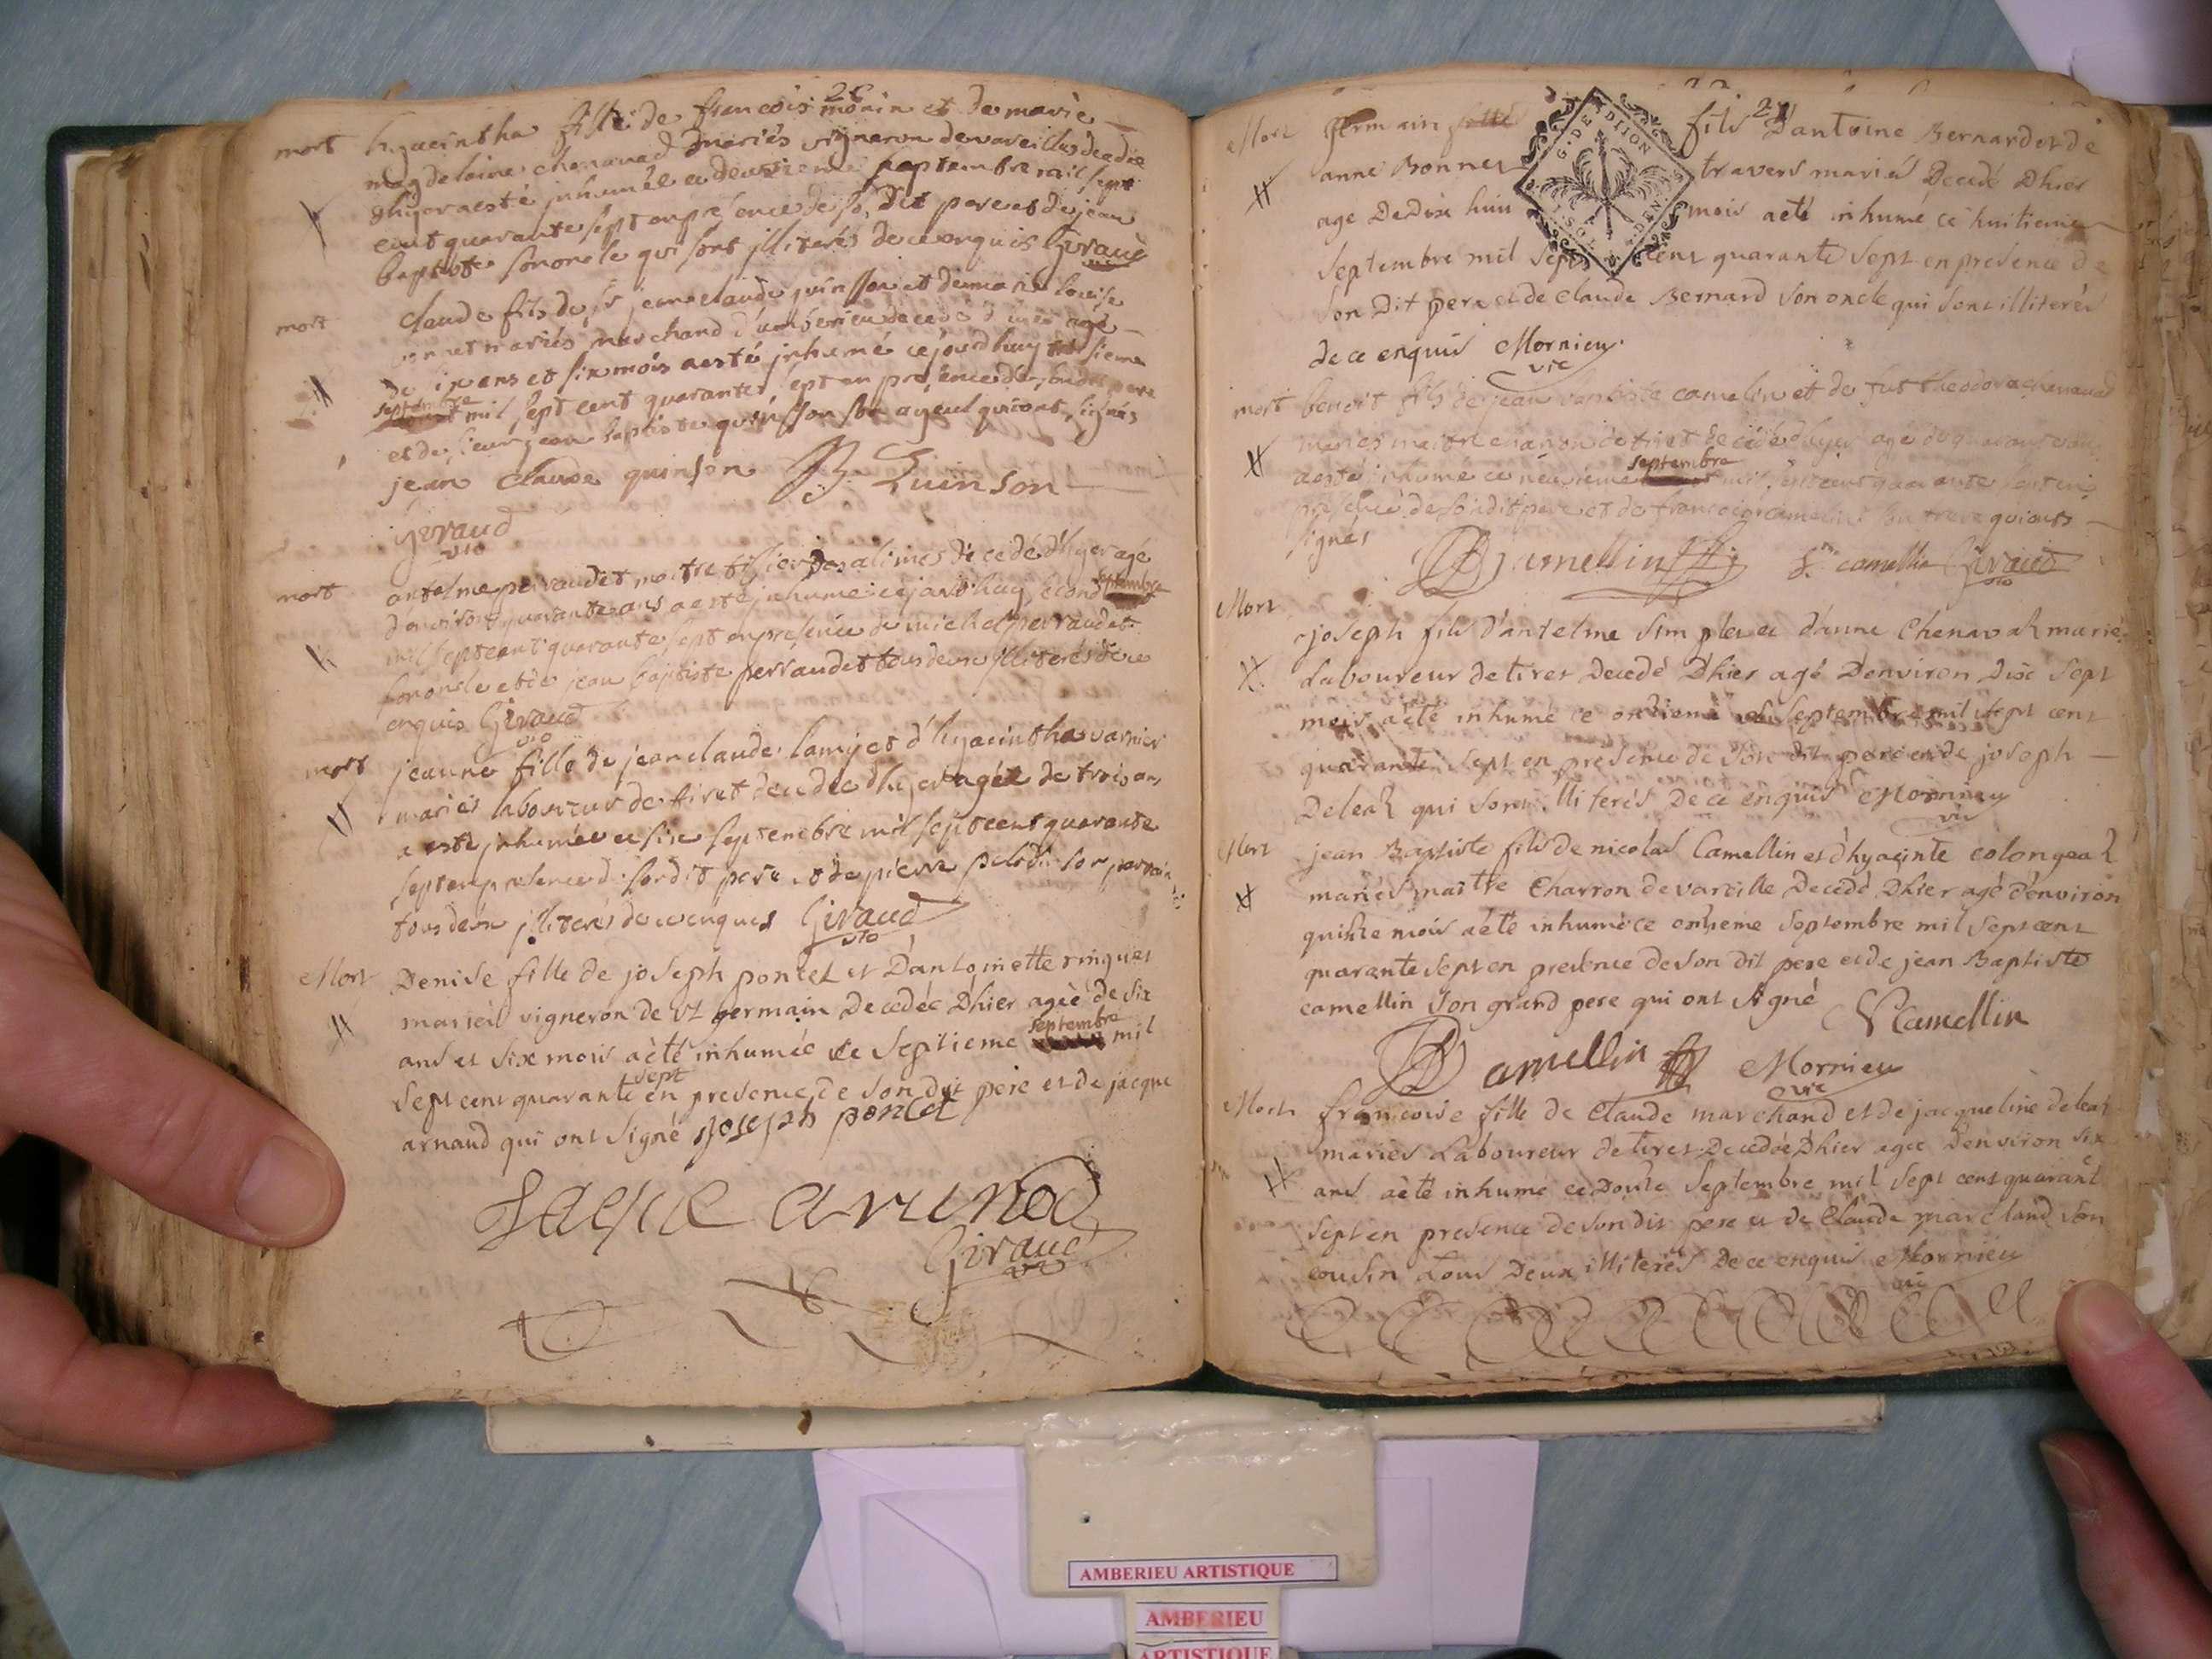 26
mort hyacintha fille de francois morin et de marie
magdelaine chenavad mariés vigneron de vareilles decedée
dhyer aesté inhumée ce deuxieme septembre mil sept
cent quarante sept en présence de so dit pere et de jean
baptiste son oncle qui sont jlliterés de ce enquis Giraud
mort claude fils de sr jean claude quinson et de marie louise
mariés marchand d'amberieu decedé d'hier agé
de ix ans et six mois aesté jnhumé cejourdhuy troisieme
septembre mil sept cent quarante sept en présence de sondit pere
et de sieur jean baptiste quinsson son ayeul qui ont signés
jean claude quinson JB Quinson
Giraud
vic
mort antelme perraudet maitre des alimes decedé d'hyer agé
d'environ quarante ans aesté jnhumé cejourdhuy second septembre
mil sept cent quarante sept en présence de michel perraudet
son oncle et de jean baptiste perraudet tous deux jlliterés de ce
enquis Giraud
vic
mort jeanne fille de jean claude lamy et d'hyacintha varnier
mariés laboureur de tiret decedée dhyer agée de trois ans
a esté jnhumée ce six septembre mil sept cent quarante
sept en présence de sondit pere et de pierre son parrain
tous deux jlliterés de ce enques Giraud
vic
Mort Denise fille de joseph poncet et D'antoinette ringuet
mariés vigneron de St germain Decedée Dhier agée de six
ans et six mois aété inhumée ce septieme septembre mil
sept cent quarante sept en presence de son dit pere et de jacque
arnaud qui ont signé joseph poncet
Jaque arnaud
Giraud
vic
27
G. DE DIJON
SOL DEN
Mort Germain fils D'antoine Bernard et de
anne Bonnet travers mariés Decedé Dhier
age De Dix huit mois aété inhumé ce huitieme
Septembre mil sept cent quarante sept en presence de
son Dit pere et de Claude Bernard son oncle qui sont illiterés
de ce enquis Mornieu
vic
mort benoit fils de jean baptiste camelin et de fut theodora chenavad
mariés maitre charon de tiret decedé dhyer agé de quarante
aesté inhumé ce neuvieme septembre mil sept cent quarante sept en
présence de sondit pere et de francois camelin son frere qui ont
signés
JB Camellin f. camellin Giraud
vic
Mort joseph fils d'antelme Simplex et d'anne Chenavak mariés
Laboureur de tiret Decedé Dhier agé D'environ Dix sept
mois aété inhumé ce onzieme septembre mil sept cent
quarante sept en presence de son dit pere et de joseph
Deleak qui sont illiterés De ce enquis Mornieu
vic
Mort jean Baptiste fils de nicolas Camellin et d'hyacinte colongeak
mariés maitre Charron de vareille Decedé Dhier agé d'environ
quinze mois aété inhumé ce onzieme septembre mil sept cent
quarante sept en presence de son dit pere et de jean Baptiste
camellin son grand pere qui ont signé N Camellin
JB Camellin Mornieu
vic
Mort francoise fille de Claude marchand et de jacqueline deleak
mariés Laboureur de tiret Decedée Dhier agée D'environ six
ans aété inhumé ce Douze septembre mil sept cent quarante
sept en presence de son dit pere et de Claude marchand son
cousin tous Deux illiterés De ce enquis Mornieu
vic
AMBERIEU ARTISTIQUE
AMBERIEU
ARTISTIQUE